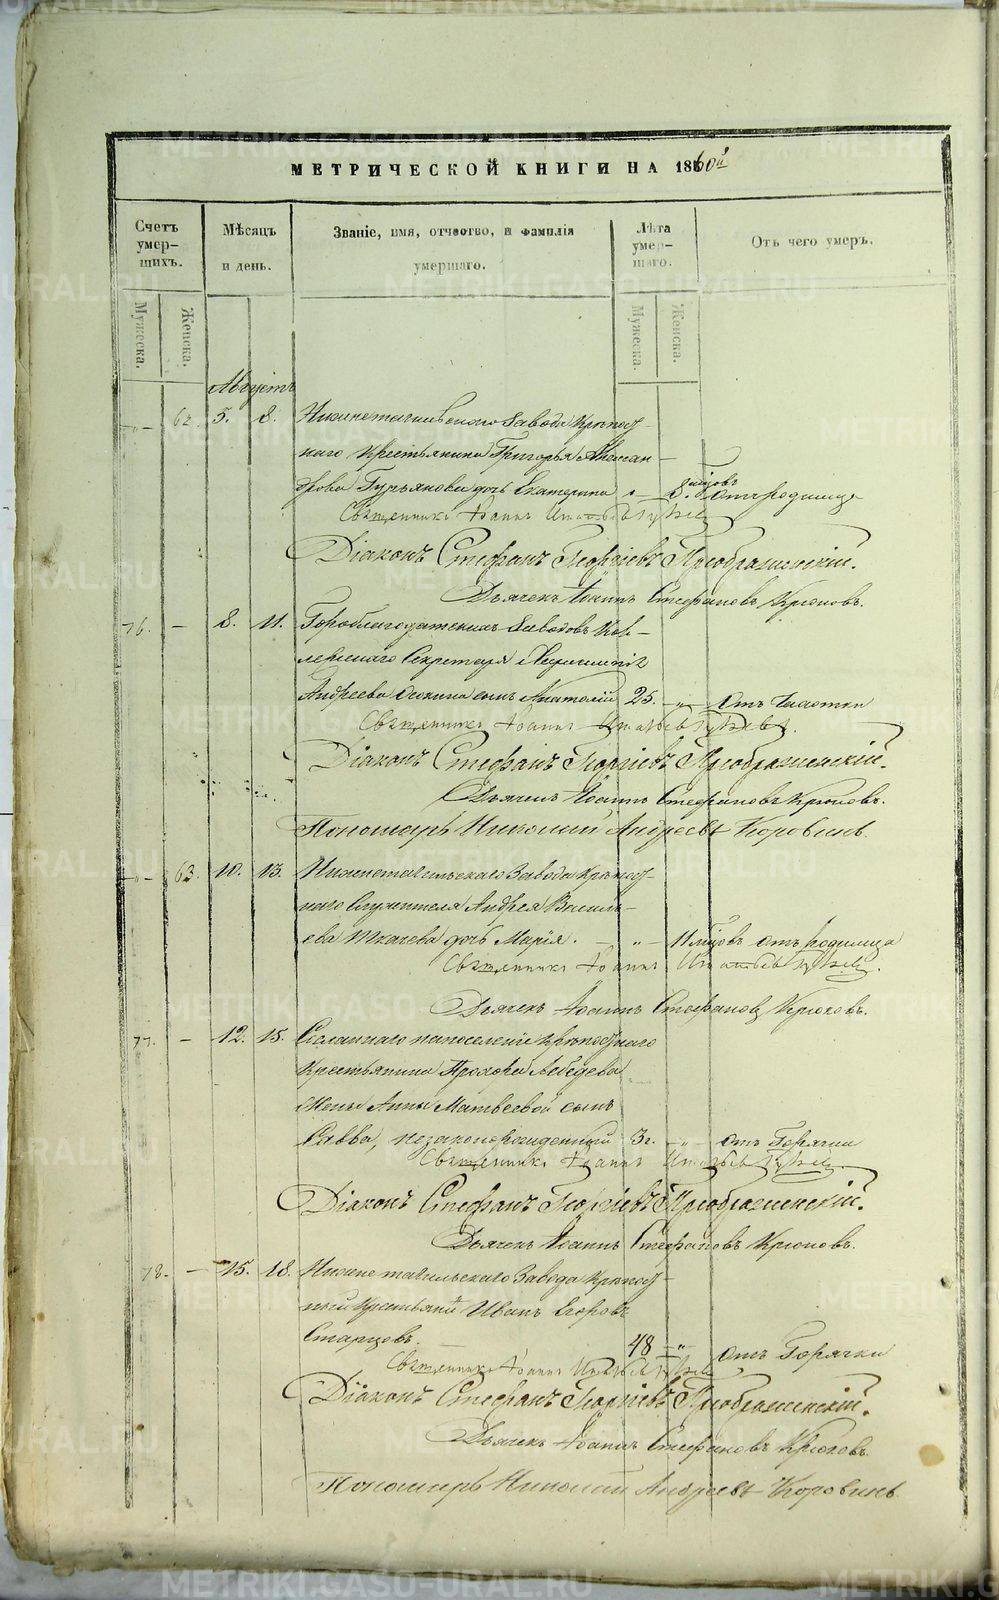 МЕТРИЧЕСКОЙ КНИГИ НА 1860й
Счетъ умер-шихъ.
Мѣсяцъ и день.
Званіе, имя, отчество, и фамилія умершаго.
Лѣта умер-шаго.
Отъ чего умеръ.
Мужеска. Женска. Мужеска. Женска.
Августъ
62. 5. 8. Нижнетагильскаго Завода Крѣпост-
наго Крестьянина Григорья Алексан-
дрова Гурьянова дочь Екатерина 8. мѣсцовъ Отъ родимца
Священникъ Іоаннъ
Діаконъ Стефанъ Георгіевъ Преображенскій.
Дьячекъ Іоаннъ Стефановъ Крюковъ.
76. — 8. 11. Гороблагодатскихъ Заводовъ Кол-
лежскаго Секретаря
Андреева сынъ Анатолій 25. „ Отъ Чахотки
Священникъ Іоаннъ
Діаконъ Стефанъ Георгіевъ Преображенскій.
Дьячекъ Іоаннъ Стефановъ Крюковъ.
Пономарь Николай Андреевъ Коровинъ.
63. 10. 13. Нижнетагильскаго Завода Крѣпост-
наго Служителя Андрея Василь-
ева Ткачева дочь Марія. — „ — 11 мѣсцовъ отъ родимца
Священникъ Іоаннъ
Дьячекъ Іоаннъ Стефановъ Крюковъ.
77. — 12. 15. Сосланнаго напоселеніе крѣпостнаго
Крестьянина Прохора Лебедева
Жены Анны Матвеевой сынъ
Савва, незаконорожденный 3г. — „ — отъ Горячки
Священникъ Іоаннъ
Діаконъ Стефанъ Георгіевъ Преображенскій.
Дьячекъ Іоаннъ Стефановъ Крюковъ.
78. — 15. 18. Нижнетагильскаго Завода Крѣпост-
ный Крестьянинъ Иванъ Егоровъ
Старцовъ. 48 — „ отъ Горячки
Священникъ Іоаннъ
Діаконъ Стефанъ Георгіевъ Преображенскій.
Дьячекъ Іоаннъ Стефановъ Крюковъ.
Пономарь Николай Андреевъ Коровинъ.
METRIKI.GASO-URAL.RU